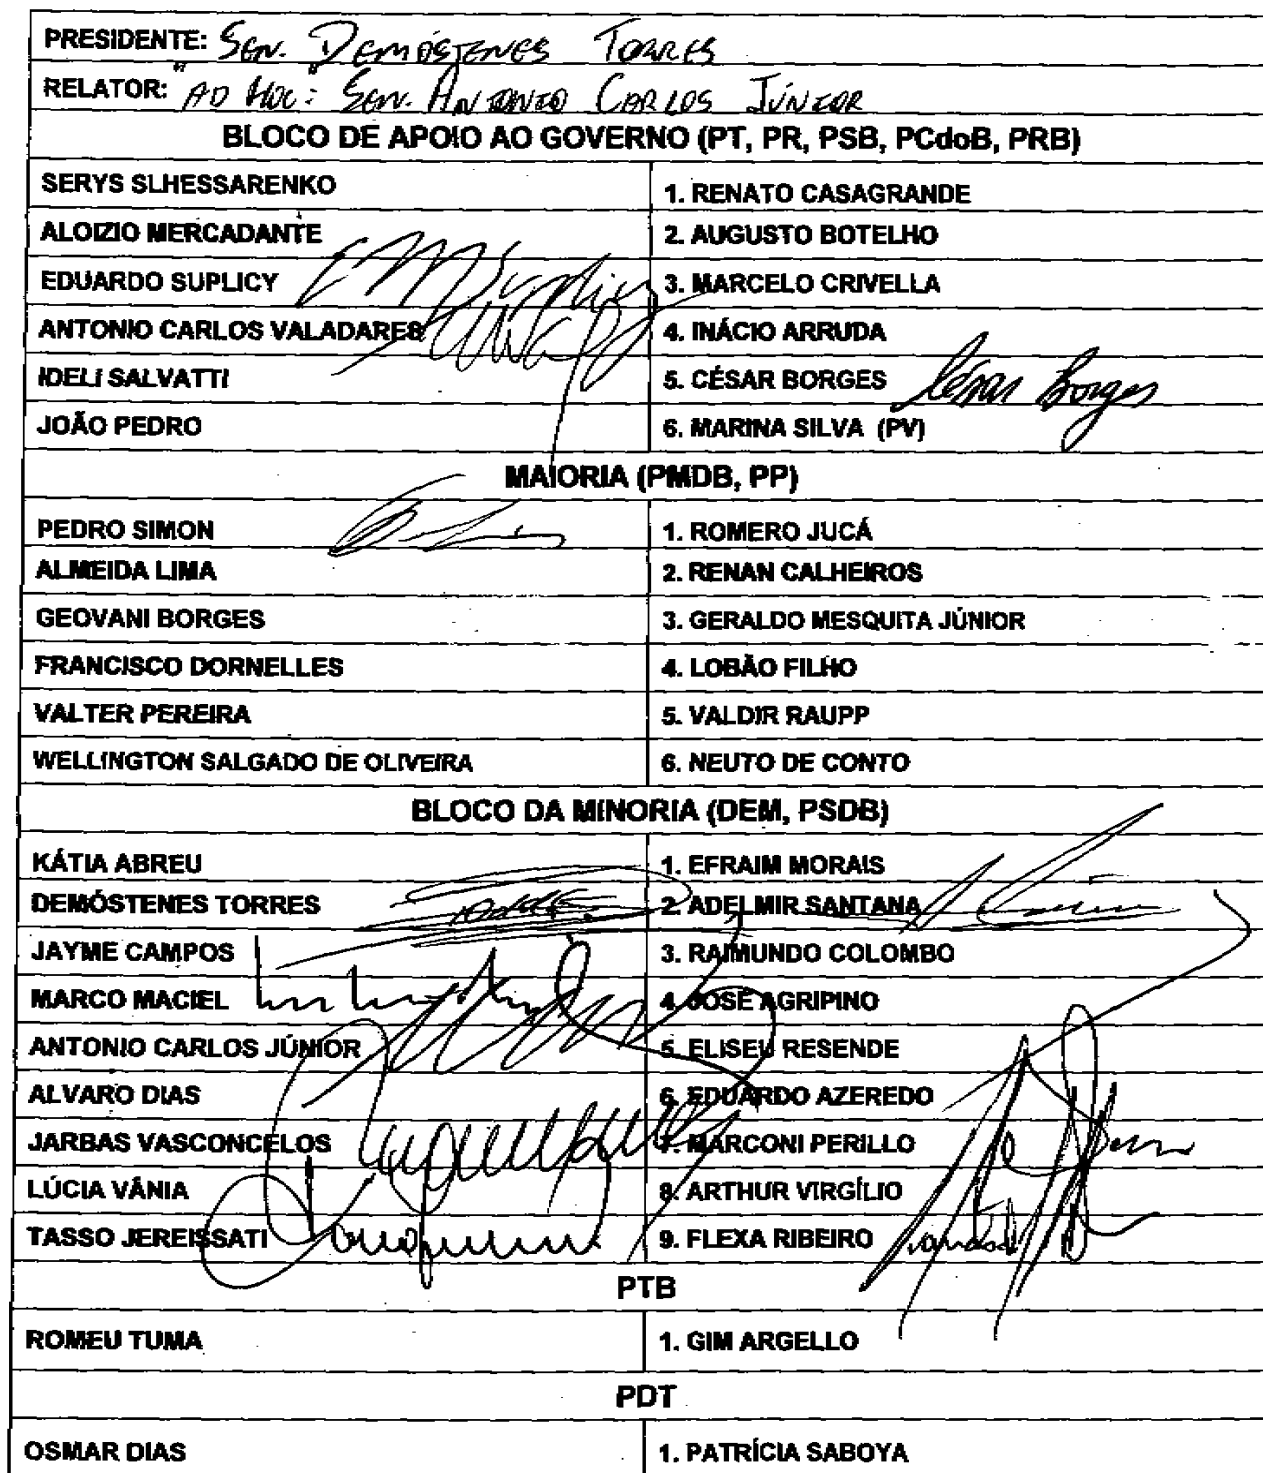 PRESIDENTE: SEN. DEMÓSTENES TORRES
RELATOR: "AD HOC": SEN. ANTONIO CARLOS JÚNIOR
BLOCO DE APOIO AO GOVERNO (PT, PR, PSB, PCdoB, PRB)
SERYS SLHESSARENKO 1. RENATO CASAGRANDE
ALOIZIO MERCADANTE 2. AUGUSTO BOTELHO
EDUARDO SUPLICY 3. MARCELO CRIVELLA
ANTONIO CARLOS VALADARES 4. INÁCIO ARRUDA
IDELI SALVATTI 5. CÉSAR BORGES César Borges
JOÃO PEDRO 6. MARINA SILVA (PV)
MAIORIA (PMDB, PP)
PEDRO SIMON 1. ROMERO JUCÁ
ALMEIDA LIMA 2. RENAN CALHEIROS
GEOVANI BORGES 3. GERALDO MESQUITA JÚNIOR
FRANCISCO DORNELLES 4. LOBÃO FILHO
VALTER PEREIRA 5. VALDIR RAUPP
WELLINGTON SALGADO DE OLIVEIRA 6. NEUTO DE CONTO
BLOCO DA MINORIA (DEM, PSDB)
KÁTIA ABREU 1. EFRAIM MORAIS
DEMÓSTENES TORRES 2. ADELMIR SANTANA
JAYME CAMPOS 3. RAIMUNDO COLOMBO
MARCO MACIEL 4. JOSÉ AGRIPINO
ANTONIO CARLOS JÚNIOR 5. ELISEU RESENDE
ALVARO DIAS 6. EDUARDO AZEREDO
JARBAS VASCONCELOS 7. MARCONI PERILLO
LÚCIA VÂNIA 8. ARTHUR VIRGÍLIO
TASSO JEREISSATI 9. FLEXA RIBEIRO
PTB
ROMEU TUMA 1. GIM ARGELLO
PDT
OSMAR DIAS 1. PATRÍCIA SABOYA